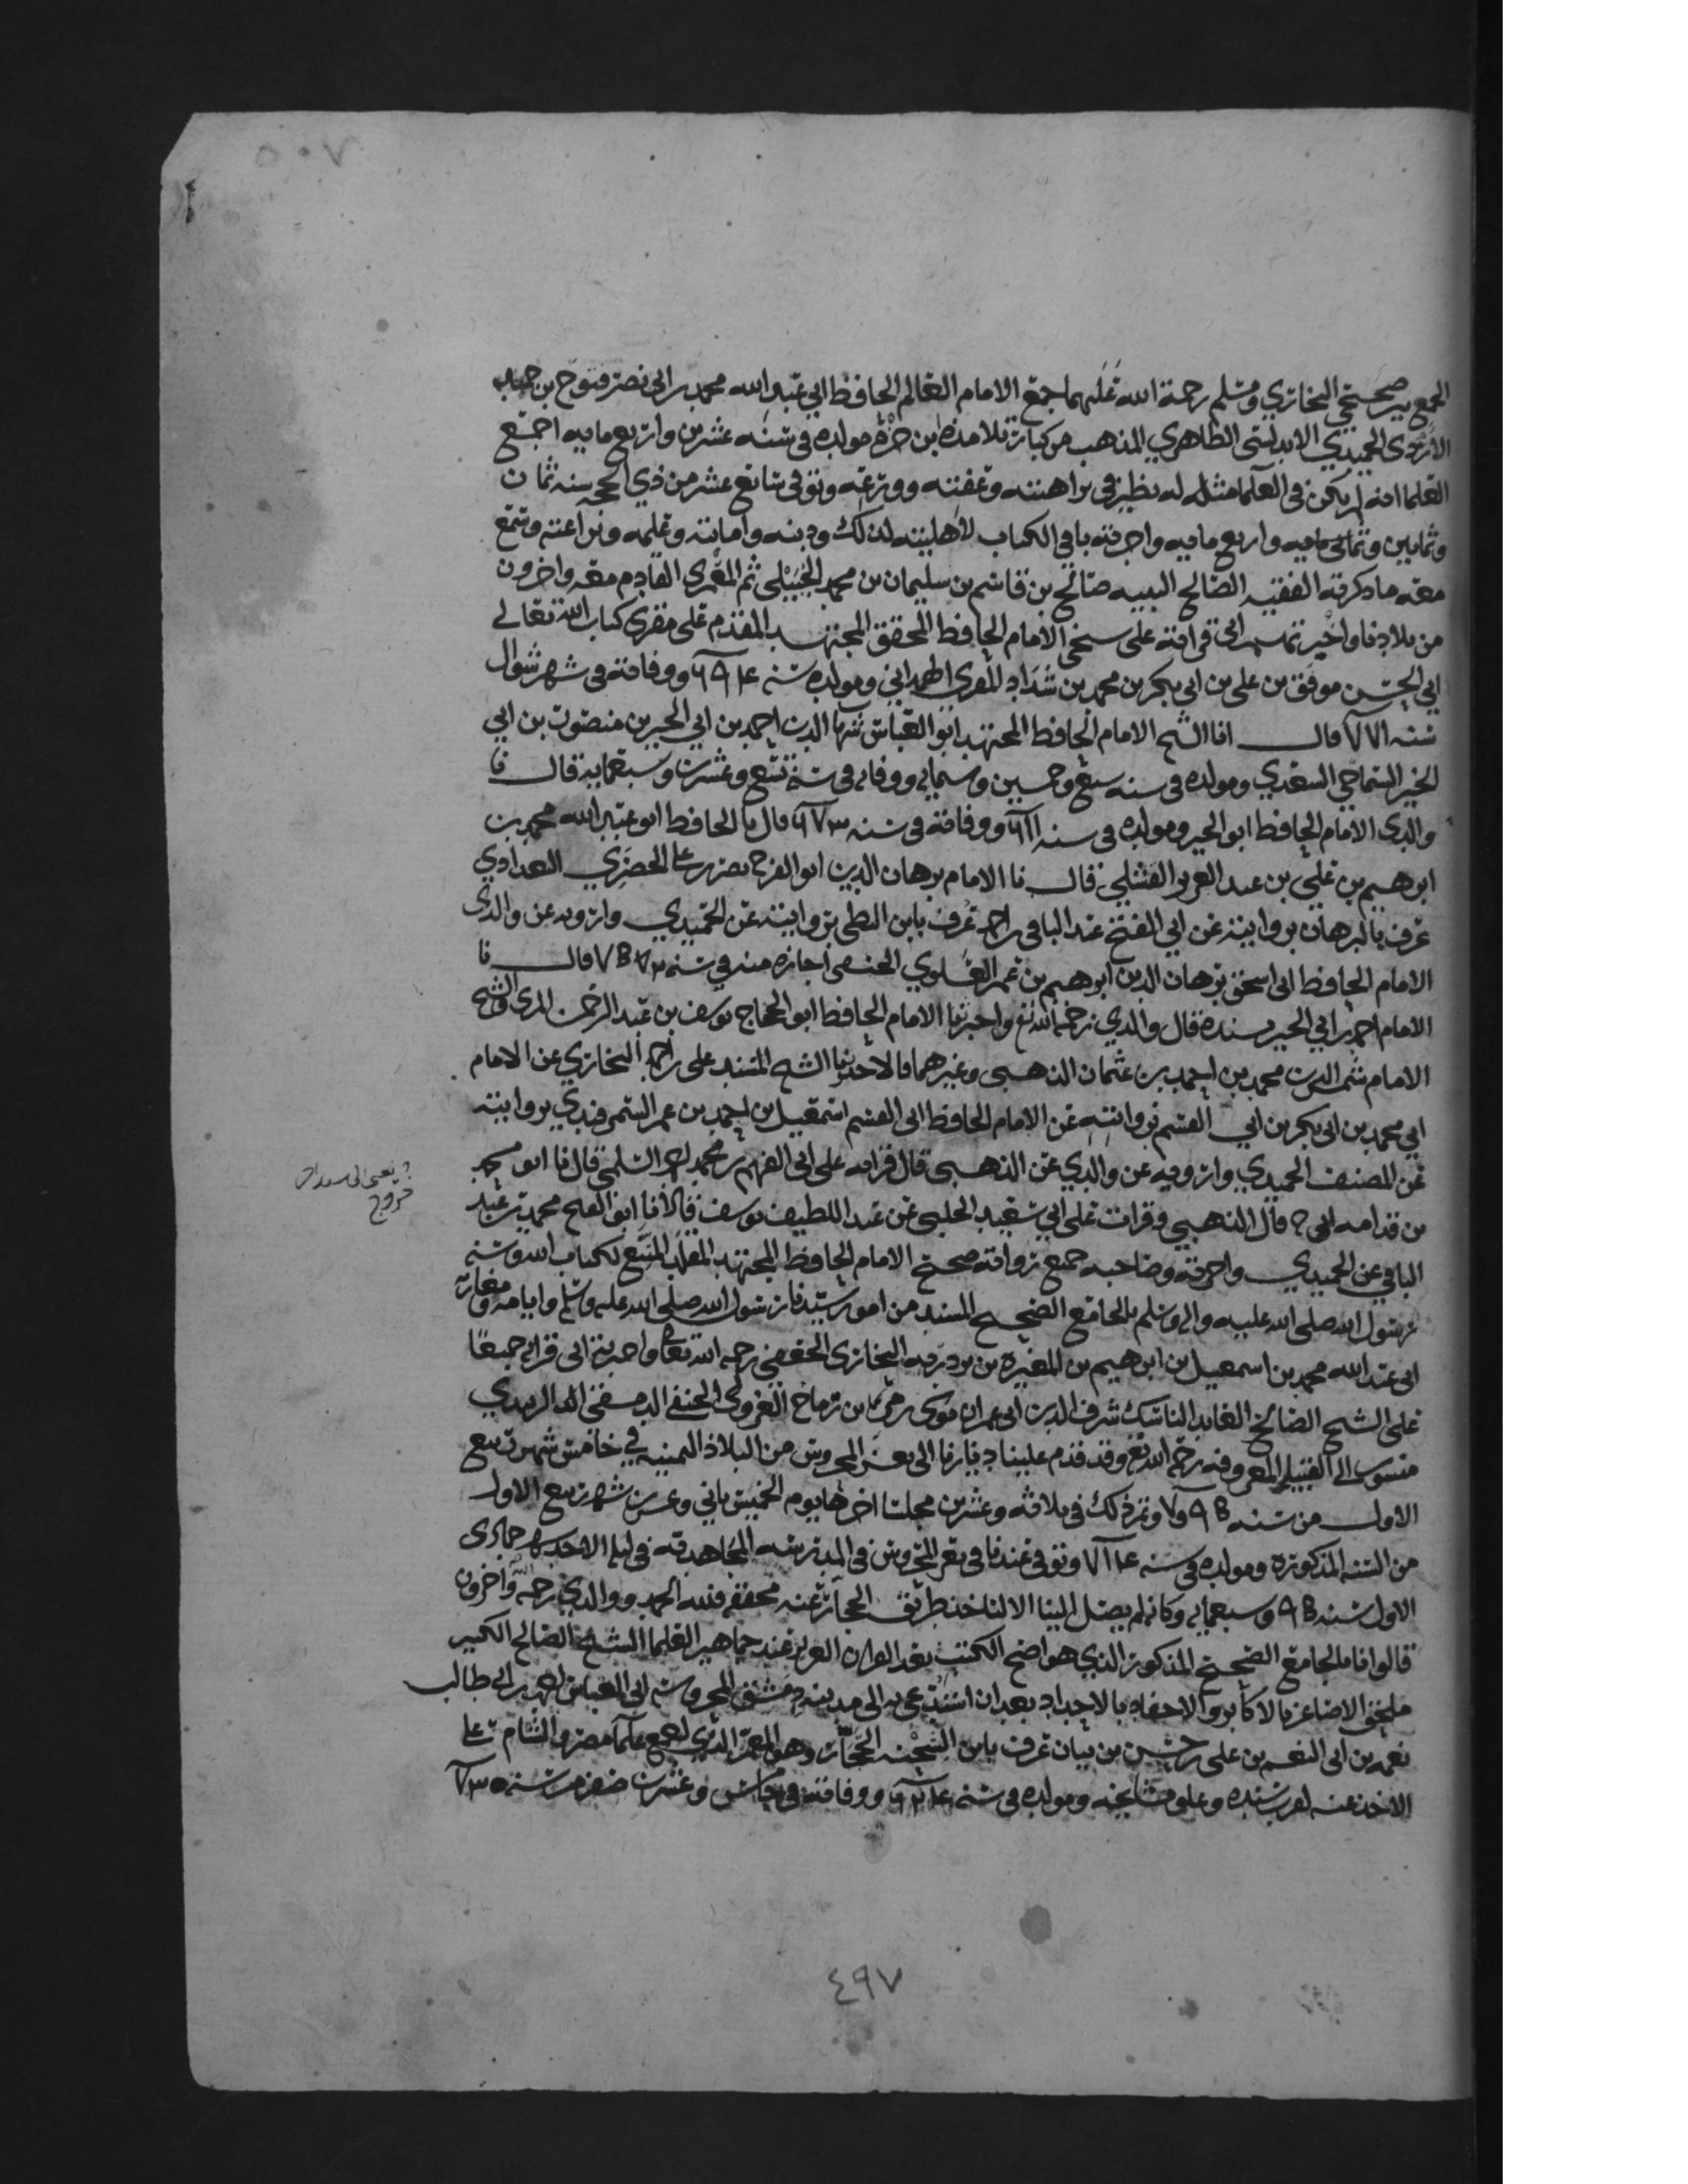 ٧٠٥
الجمع بين صحيحي البخاري ومسلم رحمة الله عليهما جمع الامام العالم الحافظ ابي عبد الله محمد بن ابي نصر فتوح بن حميد
الازدي الحميدي الاندلسي الظاهري المذهب من كبار تلامذة ابن حزم مولده في سنه عشرين واربع مايه اجمع
العلما انه لم يكن في العلما مثل له نظير في نزاهته وعفته وورعه وتوفي سابع عشر من ذي الحجه سنه ثمان
وثمانين واربع مايه واجزته باقي الكتاب لاهليته لذلك ودينه وامانته وعلمه وبراعته وسمع
معه ما ذكرته الفقيه الصالح النبيه صالح بن قاسم بن سليمان بن محمد الحبيلي ثم المعمري القادم معه واخرون
من بلادنا واخبرتهم اني قراته على شيخي الامام الحافظ المحقق المجتهد المقدم على مقري كتاب الله تعالى
ابي الحسن موفق بن علي بن ابي بكر بن محمد بن شداد المقري الهمداني ومولده سنه ٦٩٤ ووفاته في شهر شوال
سنه ٧٧١ قال انا الشيخ الامام الحافظ المجتهد ابو العباس شهاب الدين احمد بن ابي الخير بن منصور بن ابي
الخير الشماخي السعدي ومولده في سنه سبع وخمسين وستمايه ووفاته في سنة تسع وعشرين وسبعمايه قال نا
والدي الامام الحافظ ابو الخير ومولده في سنه ٦١١ ووفاته في سنه ٦٧٣ قال نا الحافظ ابو عبد الله محمد بن
ابرهيم بن علي بن عبد العزيز الفشلي قال نا الامام برهان الدين ابو الفرج نصر بن علي الحصري البغدادي
عرف بالبرهان بروايته عن ابي الفتح عبد الباقي بن احمد عرف بابن البطي بروايته عن الحميدي وارويه عن والدي
الامام الحافظ ابي اسحق برهان الدين ابرهيم بن عمر العلوي الحنفي اجازه منه في سنه قال نا
الامام احمد بن ابي الخير بسنده قال والدي رحمه الله تع واخبرنا الامام الحافظ ابو الحجاج يوسف بن عبد الرحمن المزي والشيخ
الامام شمس الدين محمد بن احمد بن عثمان الذهبي وغيرهما قالا اخبرنا الشيخ المسند علي بن احمد البخاري عن الامام
ابي محمد بن ابي بكر بن ابي القسم بروايته عن الامام الحافظ ابي القسم اسمعيل بن احمد بن عمر السمرقندي بروايته
عن المصنف الحميدي وارويه عن والدي عن الذهبي قال قراته على ابي الفهم بن محمد بن احمد السلمي قال نا ابو محمد
بن قدامه ح قال الذهبي وقرات على ابي سعيد الحلبي عن عبد اللطيف بن يوسف قالا انا ابو الفتح محمد بن عبد
الباقي عن الحميدي واجزته وصاحبه جميع رواته صحيح الامام الحافظ المجتهد المتبع لكتاب الله وسنه
رسول الله صلى الله عليه واله وسلم الجامع الصحيح المسند من امور سيدنا رسول الله صلى الله عليه وسلم وايامه ومغازيه
ابي عبد الله محمد بن اسمعيل بن ابرهيم بن المغيره بن بردزبه البخاري الجعفي رحمه الله تعالى واخبرته اني قراته جميعا
على الشيخ الصالح العابد الناسك شرف الدين ابي عمران موسى بن مري بن رماح الغزولي الحنفي الدمشقي الزبيدي
منسوب الى القبيله المعروفه رحمه الله تع وقد قدم علينا ديارنا الى تعز المحروس من البلاد اليمنيه في خامس شهر ربيع
الاول من سنه ٧٩٥ وتم ذلك في ثلاثه وعشرين مجلسا اخرها يوم الخميس ثاني وعشرين شهر ربيع الاول
من السنه المذكوره ومولده في سنه ٧١٤ وتوفي عندنا في تعز المحروس في المدرسه المجاهديه في ليله الاحد شهر جمادى
الاول سنه ٩٥ وسبعمايه وكانه لم يصل الينا الا لناخذ طريق الحجار عنه محققه فلله الحمد ووالدي رحمه الله واخرون
قالوا انا بالجامع الصحيح المذكور الذي هو اصح الكتب بعد القران العزيز عند جماهير العلما الشيخ الصالح الكبير
ملحق الاصاغر بالاكابر والاحفاد بالاجداد بعد ان استدعي به الى مدينه دمشق المحروسه ابي العباس احمد بن ابي طالب
نعمه بن ابي النعم بن علي بن حسن بن بيان عرف بابن الشحنه الحجار وهو المعمر الذي اجمع علما مصر والشام على
الاخذ عنه لقرب سنده وعلو مشايخه ومولده في سنه ٦٢٤ ووفاته في خامس وعشرين صفر من سنه ٧٣٠
٤٩٧